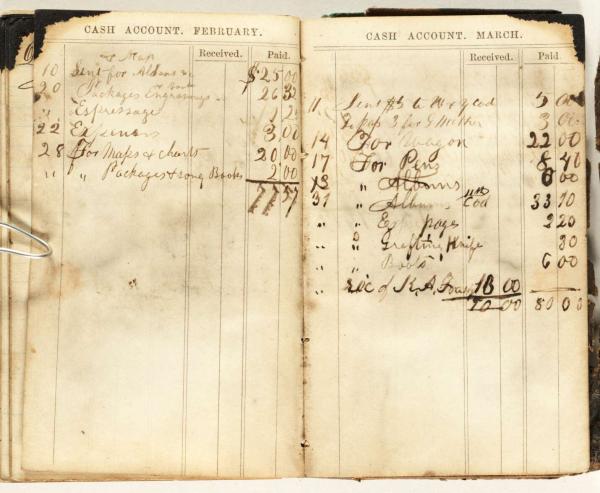 CASH ACCOUNT. FEBRUARY.
Received. Paid.
& Map
10 Sent for Albums & $25 00
20 Packages Engravings 26 32
" Expressage 1 2
22 Expenses 3.00
28 For Maps & charts 20 00
" " Packages & song Books 2 00
77 57
CASH ACCOUNT. MARCH.
Received. Paid.
11 Sent $5 to 5 00
3 for 3 00
14 For Wagon 22 00
17 For Pens 8 40
13 " Albums 6 00
31 " Albums 33 10
" " pages 2 20
" " Grafting Knife 30
" " Books 6 00
" rec of K. A. 18 00
80 00